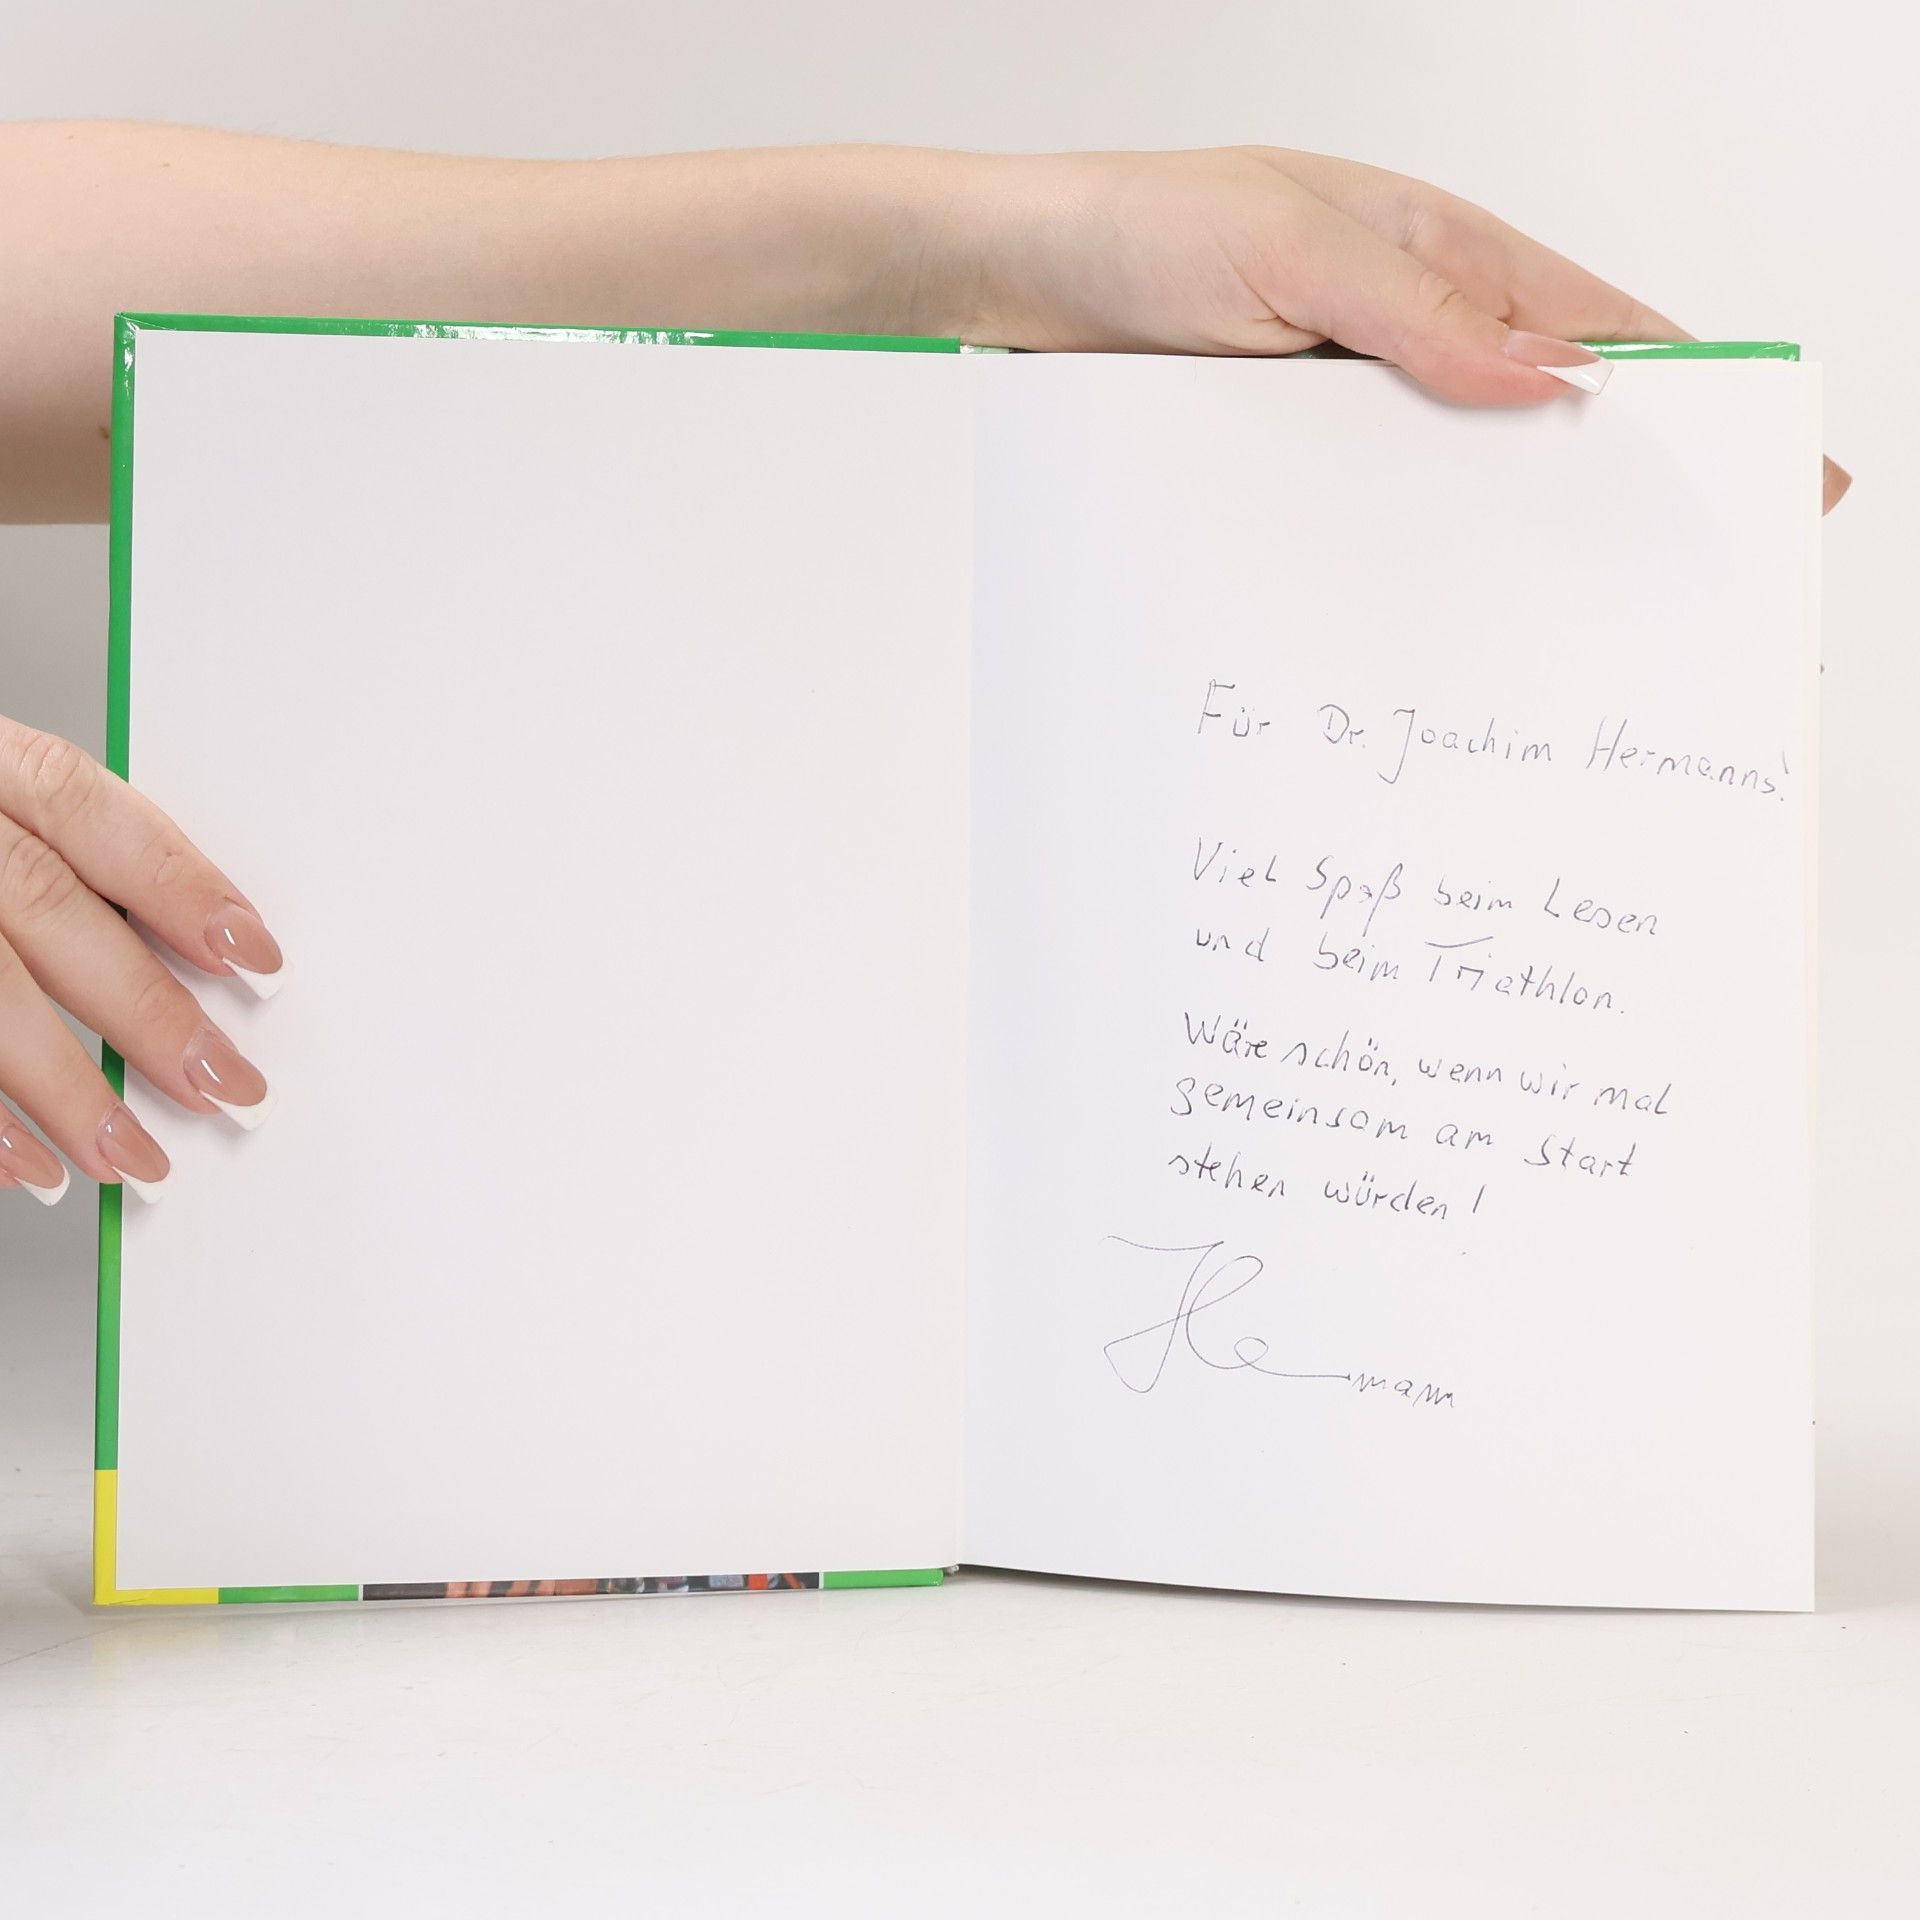 Für Dr. Joachim Hermanns!
Viel Spaß beim Lesen
und beim Triathlon.
Wäre schön, wenn wir mal
gemeinsam am Start
stehen würden!